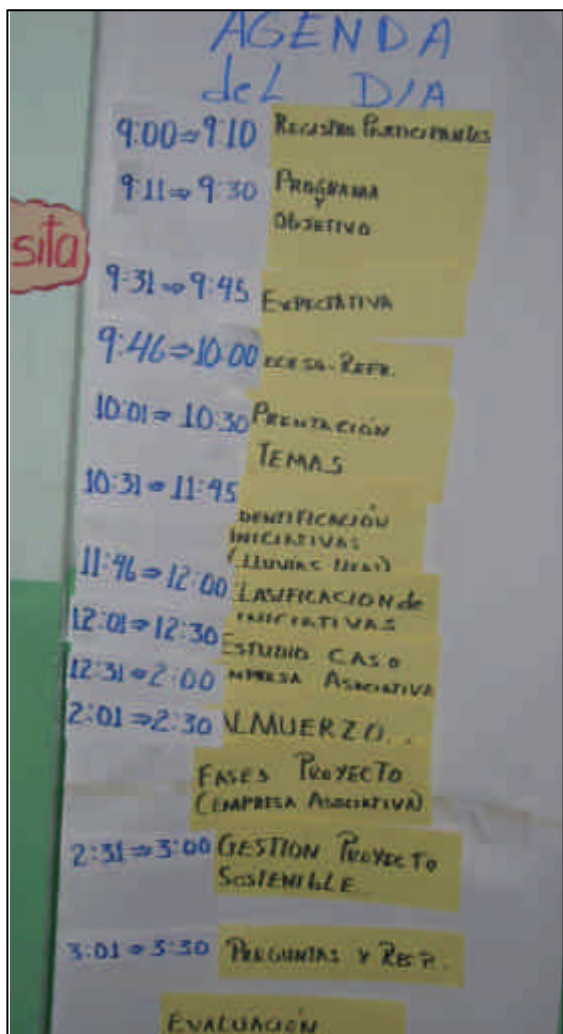 AGENDA
del DIA
9:00⇒9:10 REGISTRO PARTICIPANTES
9:11⇒9:30 PROGRAMA
OBJETIVO
sita
9:31⇒9:45 EXPECTATIVA
9:46⇒10:00 RECESO-REFR.
10:01⇒10:30 PRENTACIÓN
TEMAS
10:31⇒11:45
IDENTIFICACIÓN
INICIATIVAS
(LLUVIAS IDEAS)
11:46⇒12:00 CLASIFICACION de
INICIATIVAS
12:01⇒12:30 ESTUDIO CASO
12:31⇒2:00 EMPRESA ASOCIATIVA
2:01⇒2:30 ALMUERZO..
FASES PROYECTO
(EMPRESA ASOCIATIVA)
2:31⇒3:00 GESTION PROYECTO
SOSTENIBLE
3:01⇒3:30 PREGUNTAS Y RESP.
EVALUACIÓN